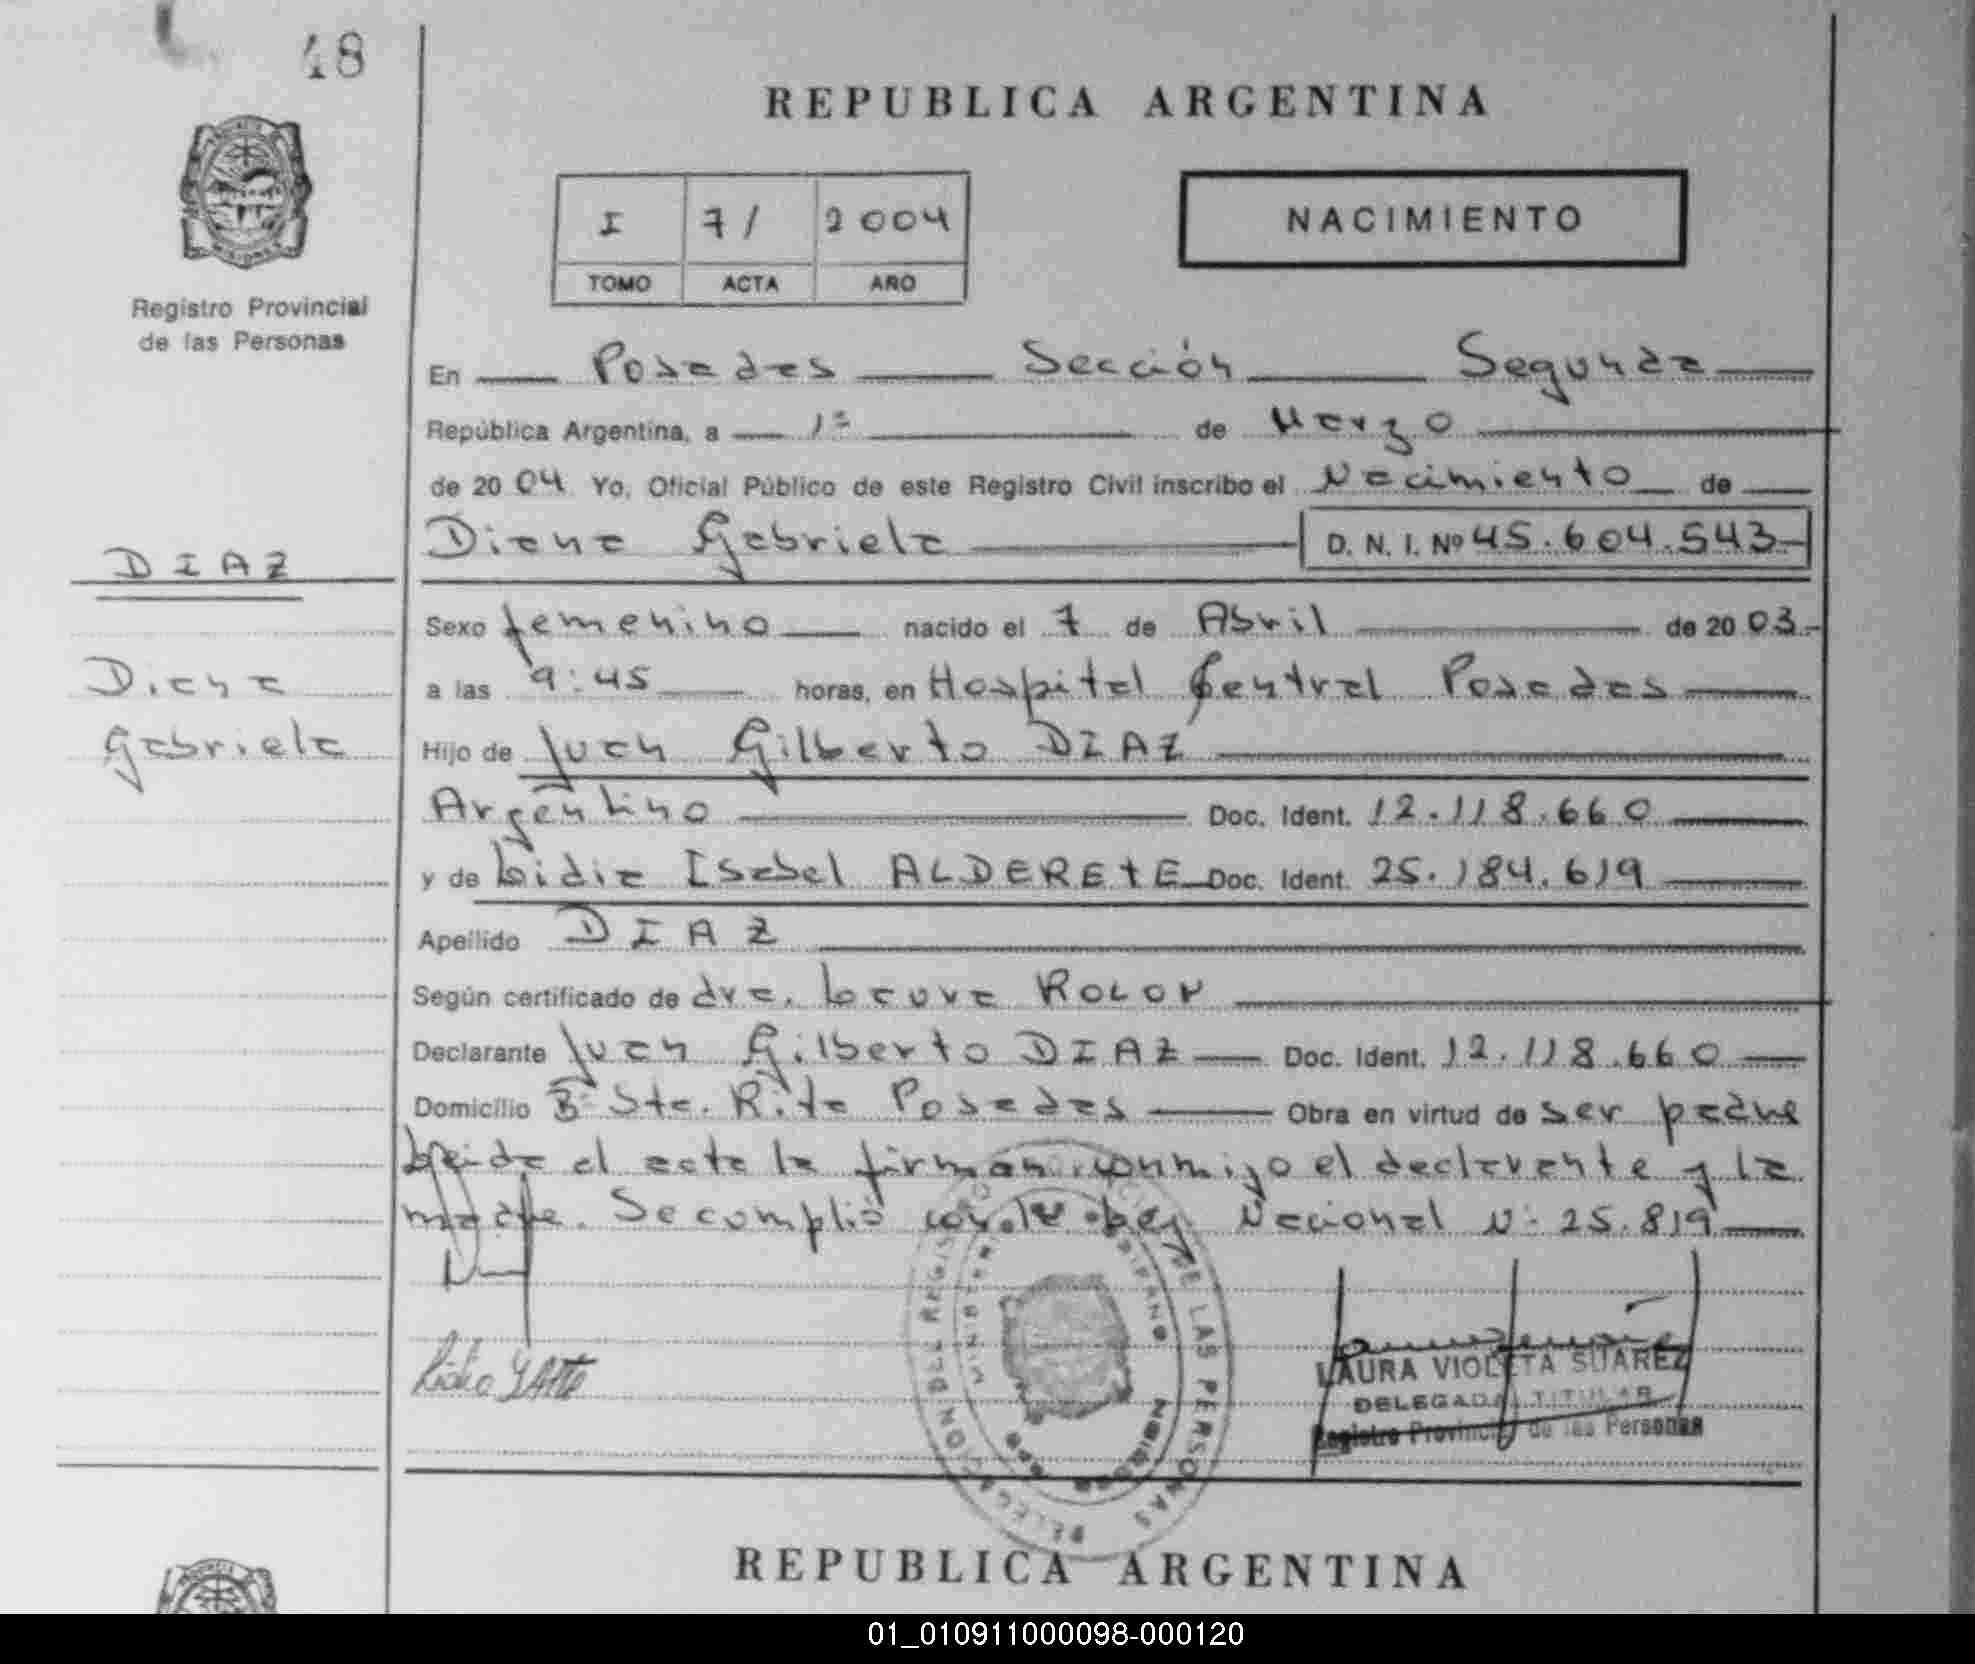 48
REPUBLICA ARGENTINA
I 7/ 2004
TOMO ACTA AÑO
NACIMIENTO
Registro Provincial
de las Personas
En Posadas Sección Segunda
República Argentina, a 1º de Marzo
de 2004 Yo, Oficial Público de este Registro Civil inscribo el Nacimiento de
Diana Gabriela D. N. I. Nº 45.604.543
DIAZ
Sexo femenino nacido el 7 de Abril de 2003
Diana
a las 9:45 horas, en Hospital Central Posadas
Gabriela
Hijo de Juan Gilberto DIAZ
Argentino Doc. Ident. 12.118.660
y de Lidia Isabel ALDERETE Doc. Ident. 25.184.619
Apellido DIAZ
Según certificado de dra. Laura ROLON
Declarante Juan Gilberto DIAZ Doc. Ident. 12.118.660
Domicilio Bº Sta. Rita Posadas Obra en virtud de ser padre
Leida el acta la firman conmigo el declarante y la
madre. Se cumplió con la Ley Nacional Nº 25.819
LAURA VIOLETA SUAREZ
DELEGADA TITULAR
Registro Provincial de las Personas
DELEGACION DEL REGISTRO DE LAS PERSONAS
REPUBLICA ARGENTINA
01_010911000098-000120